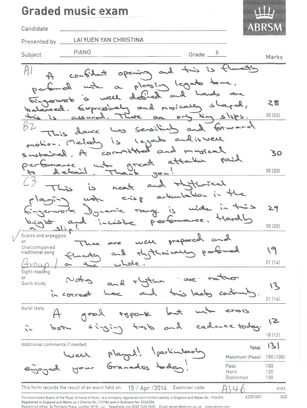 Graded music exam
ABRSM
Candidate
Presented by LAI YUEN YAN CHRISTINA
Subject PIANO Grade 6 Marks
A1 A confident opening and this is fluently
performed with a pleasing light tone.
Fingerwork is well defined and hands are
balanced. Expressively and musically shaped, 28
this is assured. There are only tiny slips. 30 (20)
B2 This dance has sensitivity and forward
motion. Melody is legato and is well
sustained. A committed and musical 30
performance with great attention paid 30 (20)
to detail. Thank you!
C3 This is neat and rhythmical
playing with crisp articulation in the
fingerwork. Dynamic range is wide in this 29
bright and incisive performance. Hardly 30 (20)
a slip!
Scales and arpeggios
or
Unaccompanied
traditional song
These are well prepared and
fluently and rhythmically performed 19
Group 1 as a whole. 21 (14)
Sight-reading
or
Quick study
Notes and rhythm are rather 13
in correct here and this lacks continuity. 21 (14)
Aural tests
A good response but with errors
in both singing task and cadence today. 12
18 (12)
Additional comments if needed
Total 131
Well played! I particularly
enjoyed your Granados today!
Maximum (Pass) 150 (100)
Pass 100
Merit 120
Distinction 130
This form records the result of an exam held on: 15 / Apr / 2014 Examiner code: A346